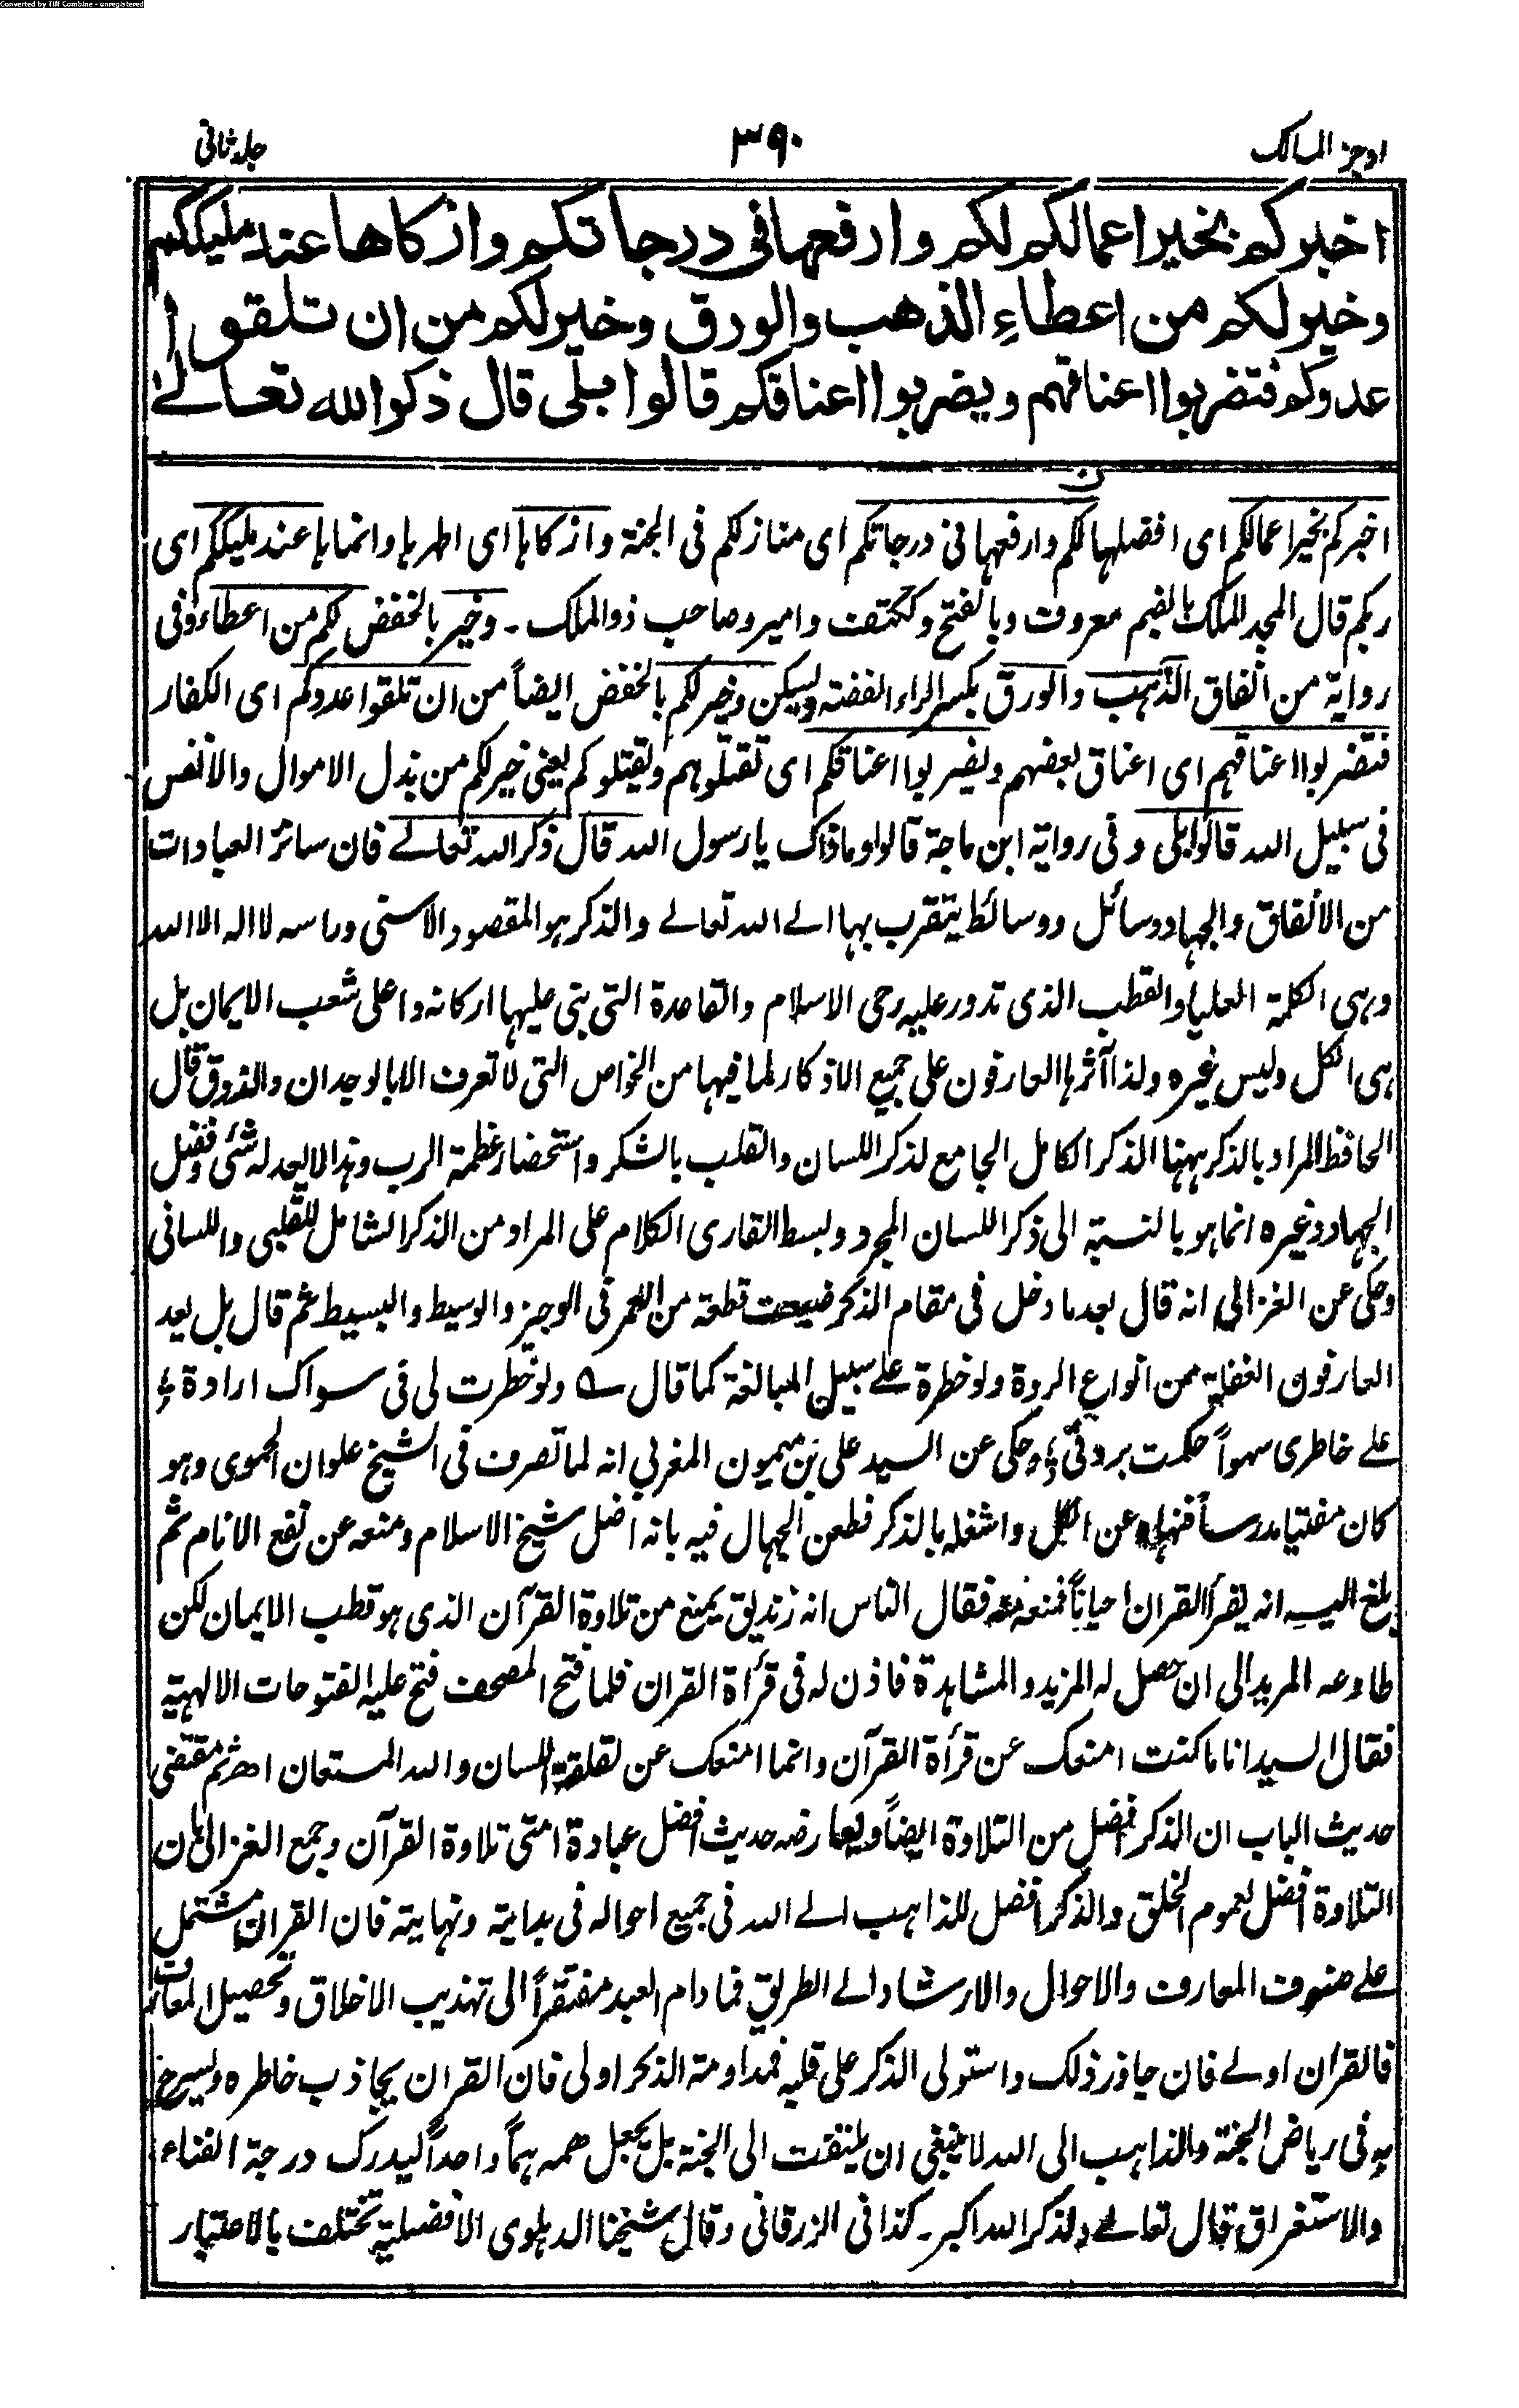 Converted by Tiff Combine - unregistered
اوجز المسالک ۳۹۰ جلد ثانی
اخبركم بخير اعمالكم لكم وارفعها في درجاتكم وازكاها عند مليككم
وخير لكم من اعطاء الذهب والورق وخير لكم من ان تلقوا
عدوكم فتضربوا اعناقهم ويضربوا اعناقكم قالوا بلى قال ذكر الله تعالے
اخبركم بخير اعمالكم اى افضلها لكم وارفعها فى درجاتكم اى منازلكم فى الجنة وازكاها اى اطهرها وانماها عند مليككم اى
ربكم قال المجد الملك بالضم معروف وبالفتح وككتف وامير وصاحب ذو الملك ۔ وخير بالخفض لكم من اعطاء وفى
رواية من انفاق الذهب والورق بكسر الراء الفضة ويسكن وخير لكم بالخفض ايضاً من ان تلقوا عدوكم اى الكفار
فتضربوا اعناقهم اى اعناق بعضهم ويضربوا اعناقكم اى تقتلوهم ويقتلوكم يعنى خير لكم من بذل الاموال والانفس
فى سبيل الله قالوا بلى وفى رواية ابن ماجة قالوا وما ذاك يا رسول الله قال ذكر الله تعالے فان سائر العبادات
من الانفاق والجهاد وسائل ووسائط يتقرب بها الے الله تعالے والذكر هو المقصود الاسنى وراسه لا اله الا الله
وهى الكلمة العليا والقطب الذى تدور عليه رحى الاسلام والقاعدة التى بنى عليها اركانه واعلى شعب الايمان بل
هى الكل وليس غيره ولذا آثرها العارفون على جميع الاذكار لما فيها من الخواص التى لا تعرف الا بالوجدان والذوق قال
الحافظ المراد بالذكر ههنا الذكر الكامل الجامع لذكر اللسان والقلب بالشكر واستحضار عظمة الرب وهذا لا يعدله شئ وفضل
الجهاد وغيره انما هو بالنسبة الى ذكر اللسان المجرد وبسط القارى الكلام على المراد من الذكر الشامل للقلبى واللسانى
وحكى عن الغزالى انه قال بعد ما دخل فى مقام الذكر ضيعت قطعة من العمر فى الوجيز والوسيط والبسيط ثم قال بل يعد
العارفون الغفلة من انواع الردة ولو خطرة علے سبيل المبالغة كما قال ؎ ولو خطرت لى فى سواك ارادة ؛
علے خاطرى سهواً حكمت بردتى ؛ وحكى عن السيد على بن ميمون المغربى انه لما تصرف فى الشيخ علوان الحموى وهو
كان مفتيا مدرساً فنهاه عن الكل واشغله بالذكر فطعن الجهال فيه بانه اضل شيخ الاسلام ومنعه عن نفع الانام ثم
بلغ اليه انه يقرأ القران احياناً فمنعه منه فقال الناس انه زنديق يمنع من تلاوة القرآن الذى هو قطب الايمان لكن
طاوعه المريد الى ان حصل له المزيد والمشاهدة فاذن له فى قرأة القران فلما فتح المصحف فتح عليه الفتوحات الالهية
فقال السيد انا ما كنت امنعك عن قرأة القرآن وانما امنعك عن لقلقة اللسان والله المستعان اھ ثم مقتضى
حديث الباب ان الذكر افضل من التلاوة ايضاً ويعارضه حديث افضل عبادة امتى تلاوة القرآن وجمع الغزالى بان
التلاوة افضل لعموم الخلق والذكر افضل للذاهب الے الله فى جميع احواله فى بدايته ونهايته فان القران مشتمل
علے صنوف المعارف والاحوال والارشاد الے الطريق فما دام العبد مفتقراً الى تهذيب الاخلاق وتحصيل المعارف
فالقران اولے فان جاوز ذلك واستولى الذكر على قلبه فمداومة الذكر اولى فان القران يجاذب خاطره ويسرح
به فى رياض الجنة والذاهب الى الله لا ينبغى ان يلتفت الى الجنة بل يجعل همه هماً واحداً ليدرك درجة الفناء
والاستغراق قال تعالے ولذكر الله اكبر ۔ كذا فى الزرقانى وقال شيخنا الدهلوى الافضلية تختلف بالاعتبار